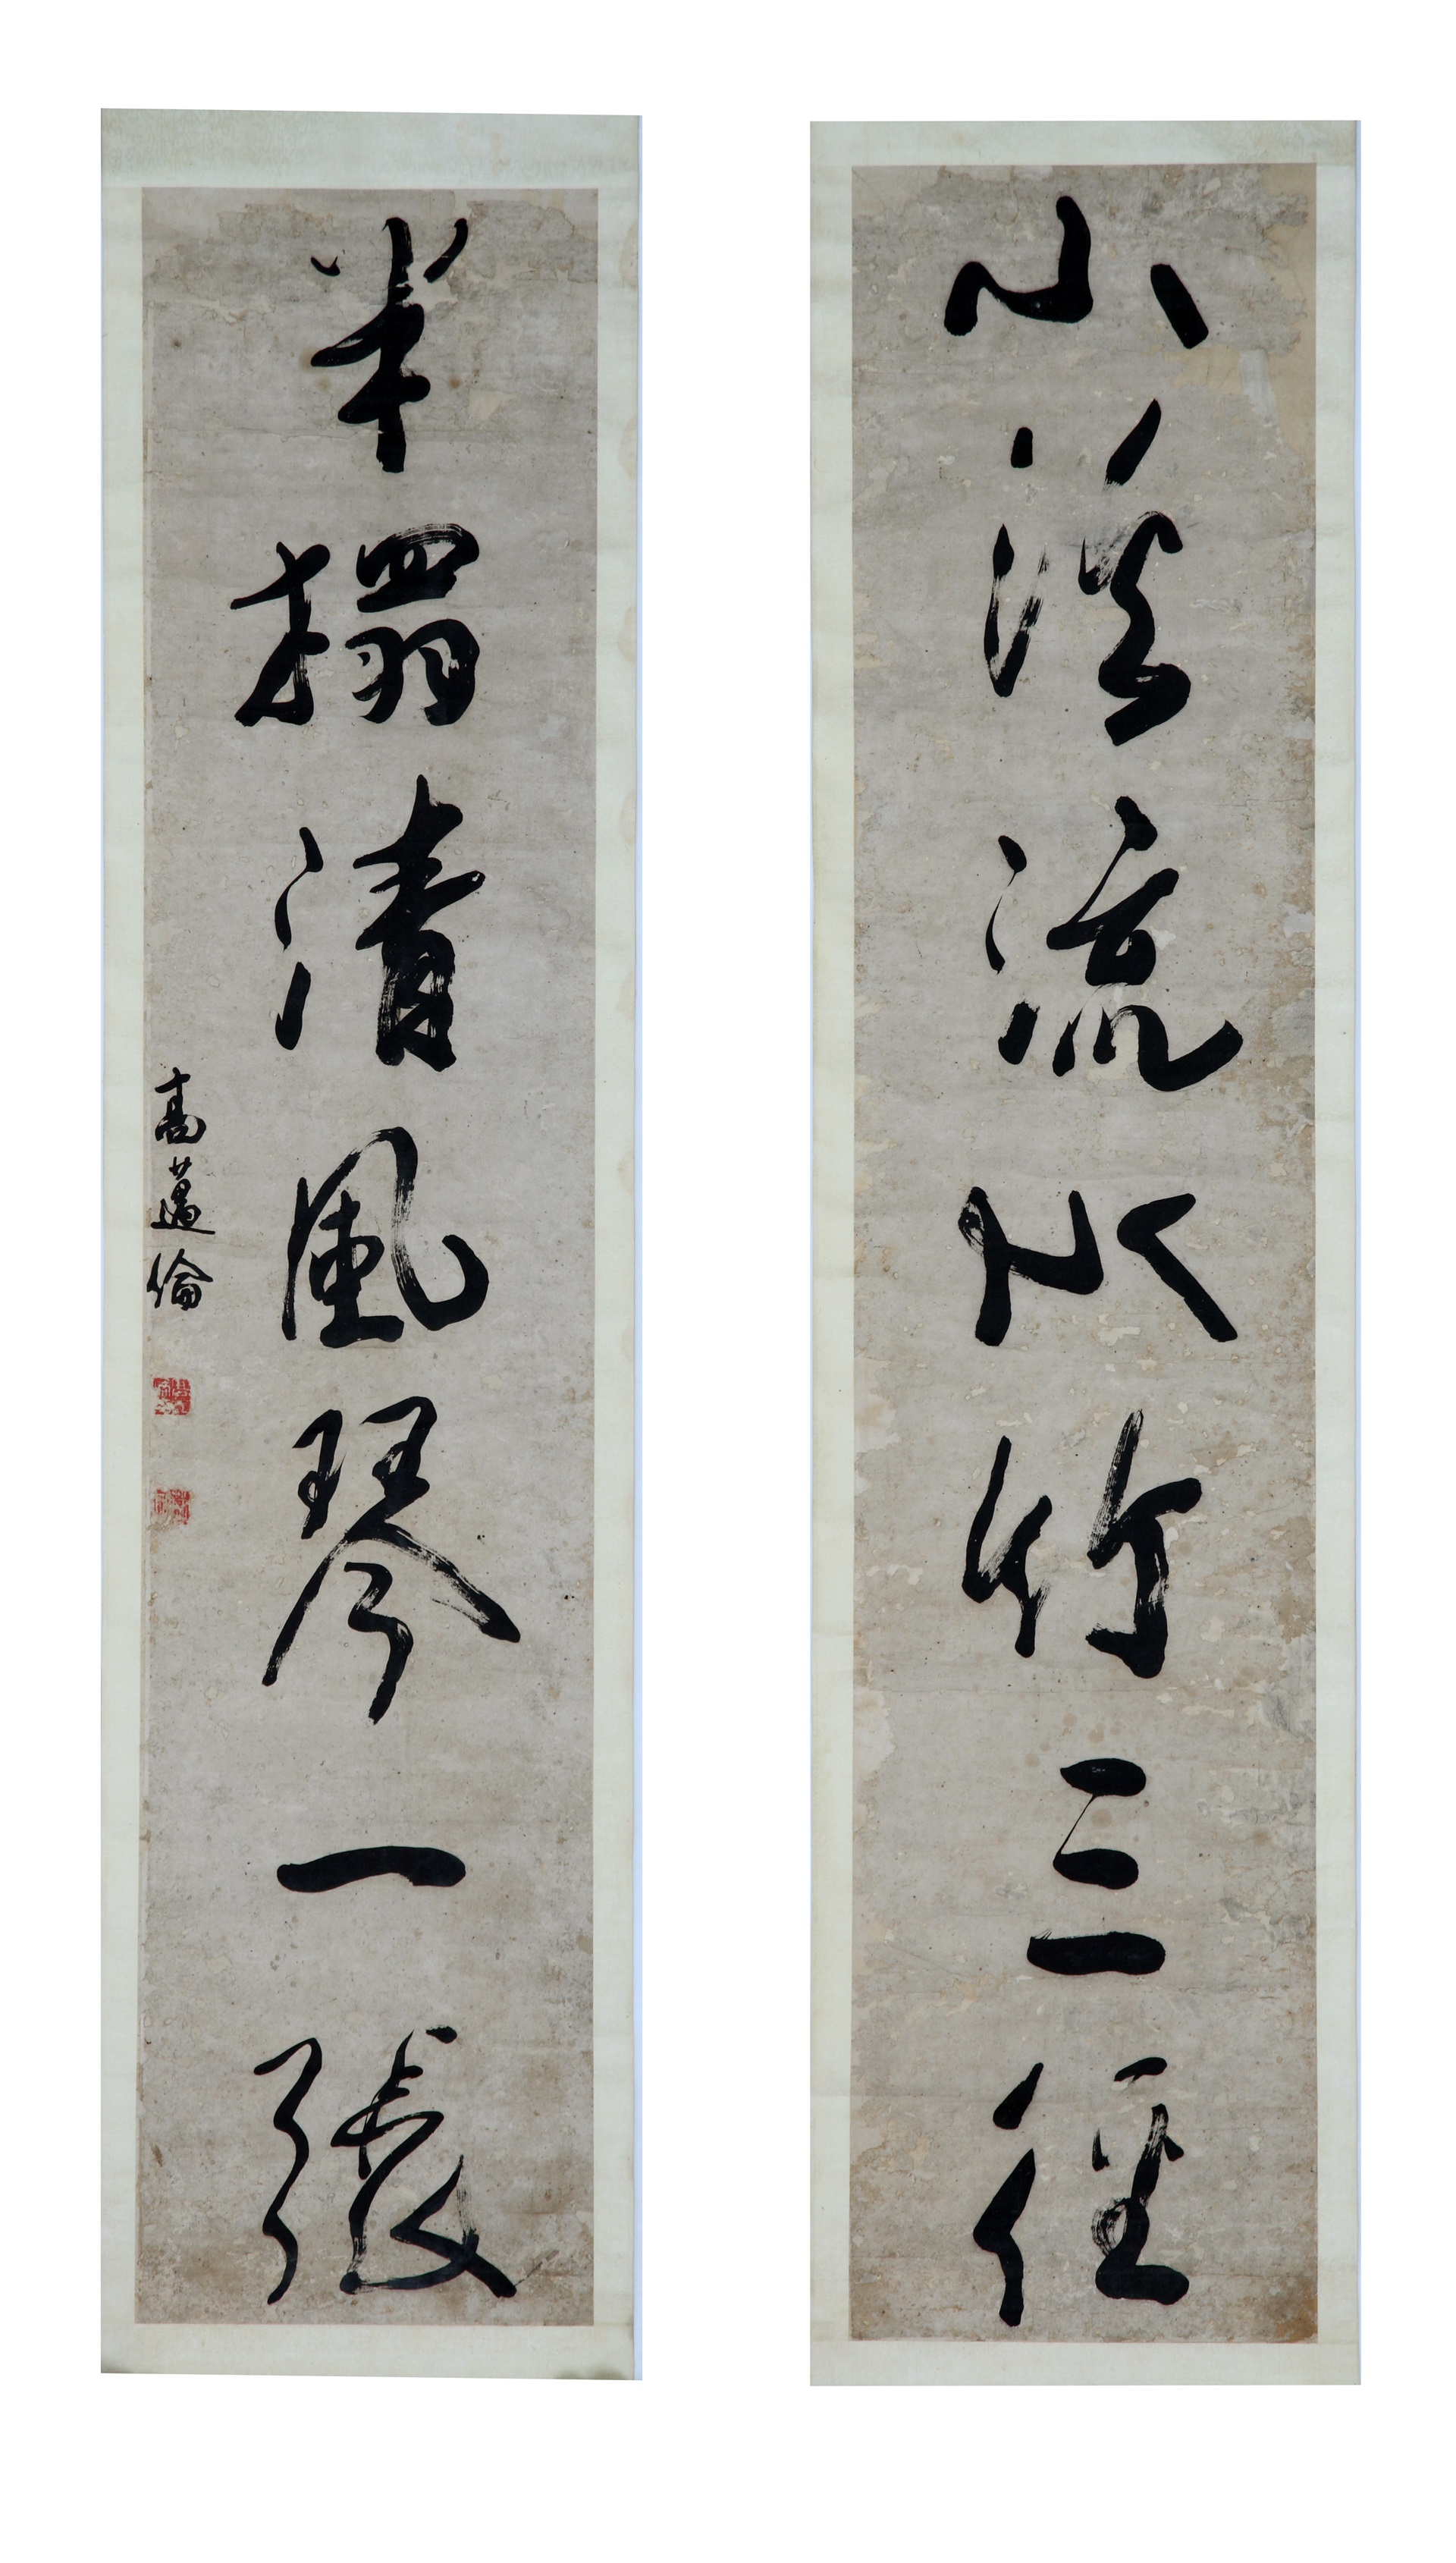 小溪流水竹三徑
半榻清風琴一張
高邁倫